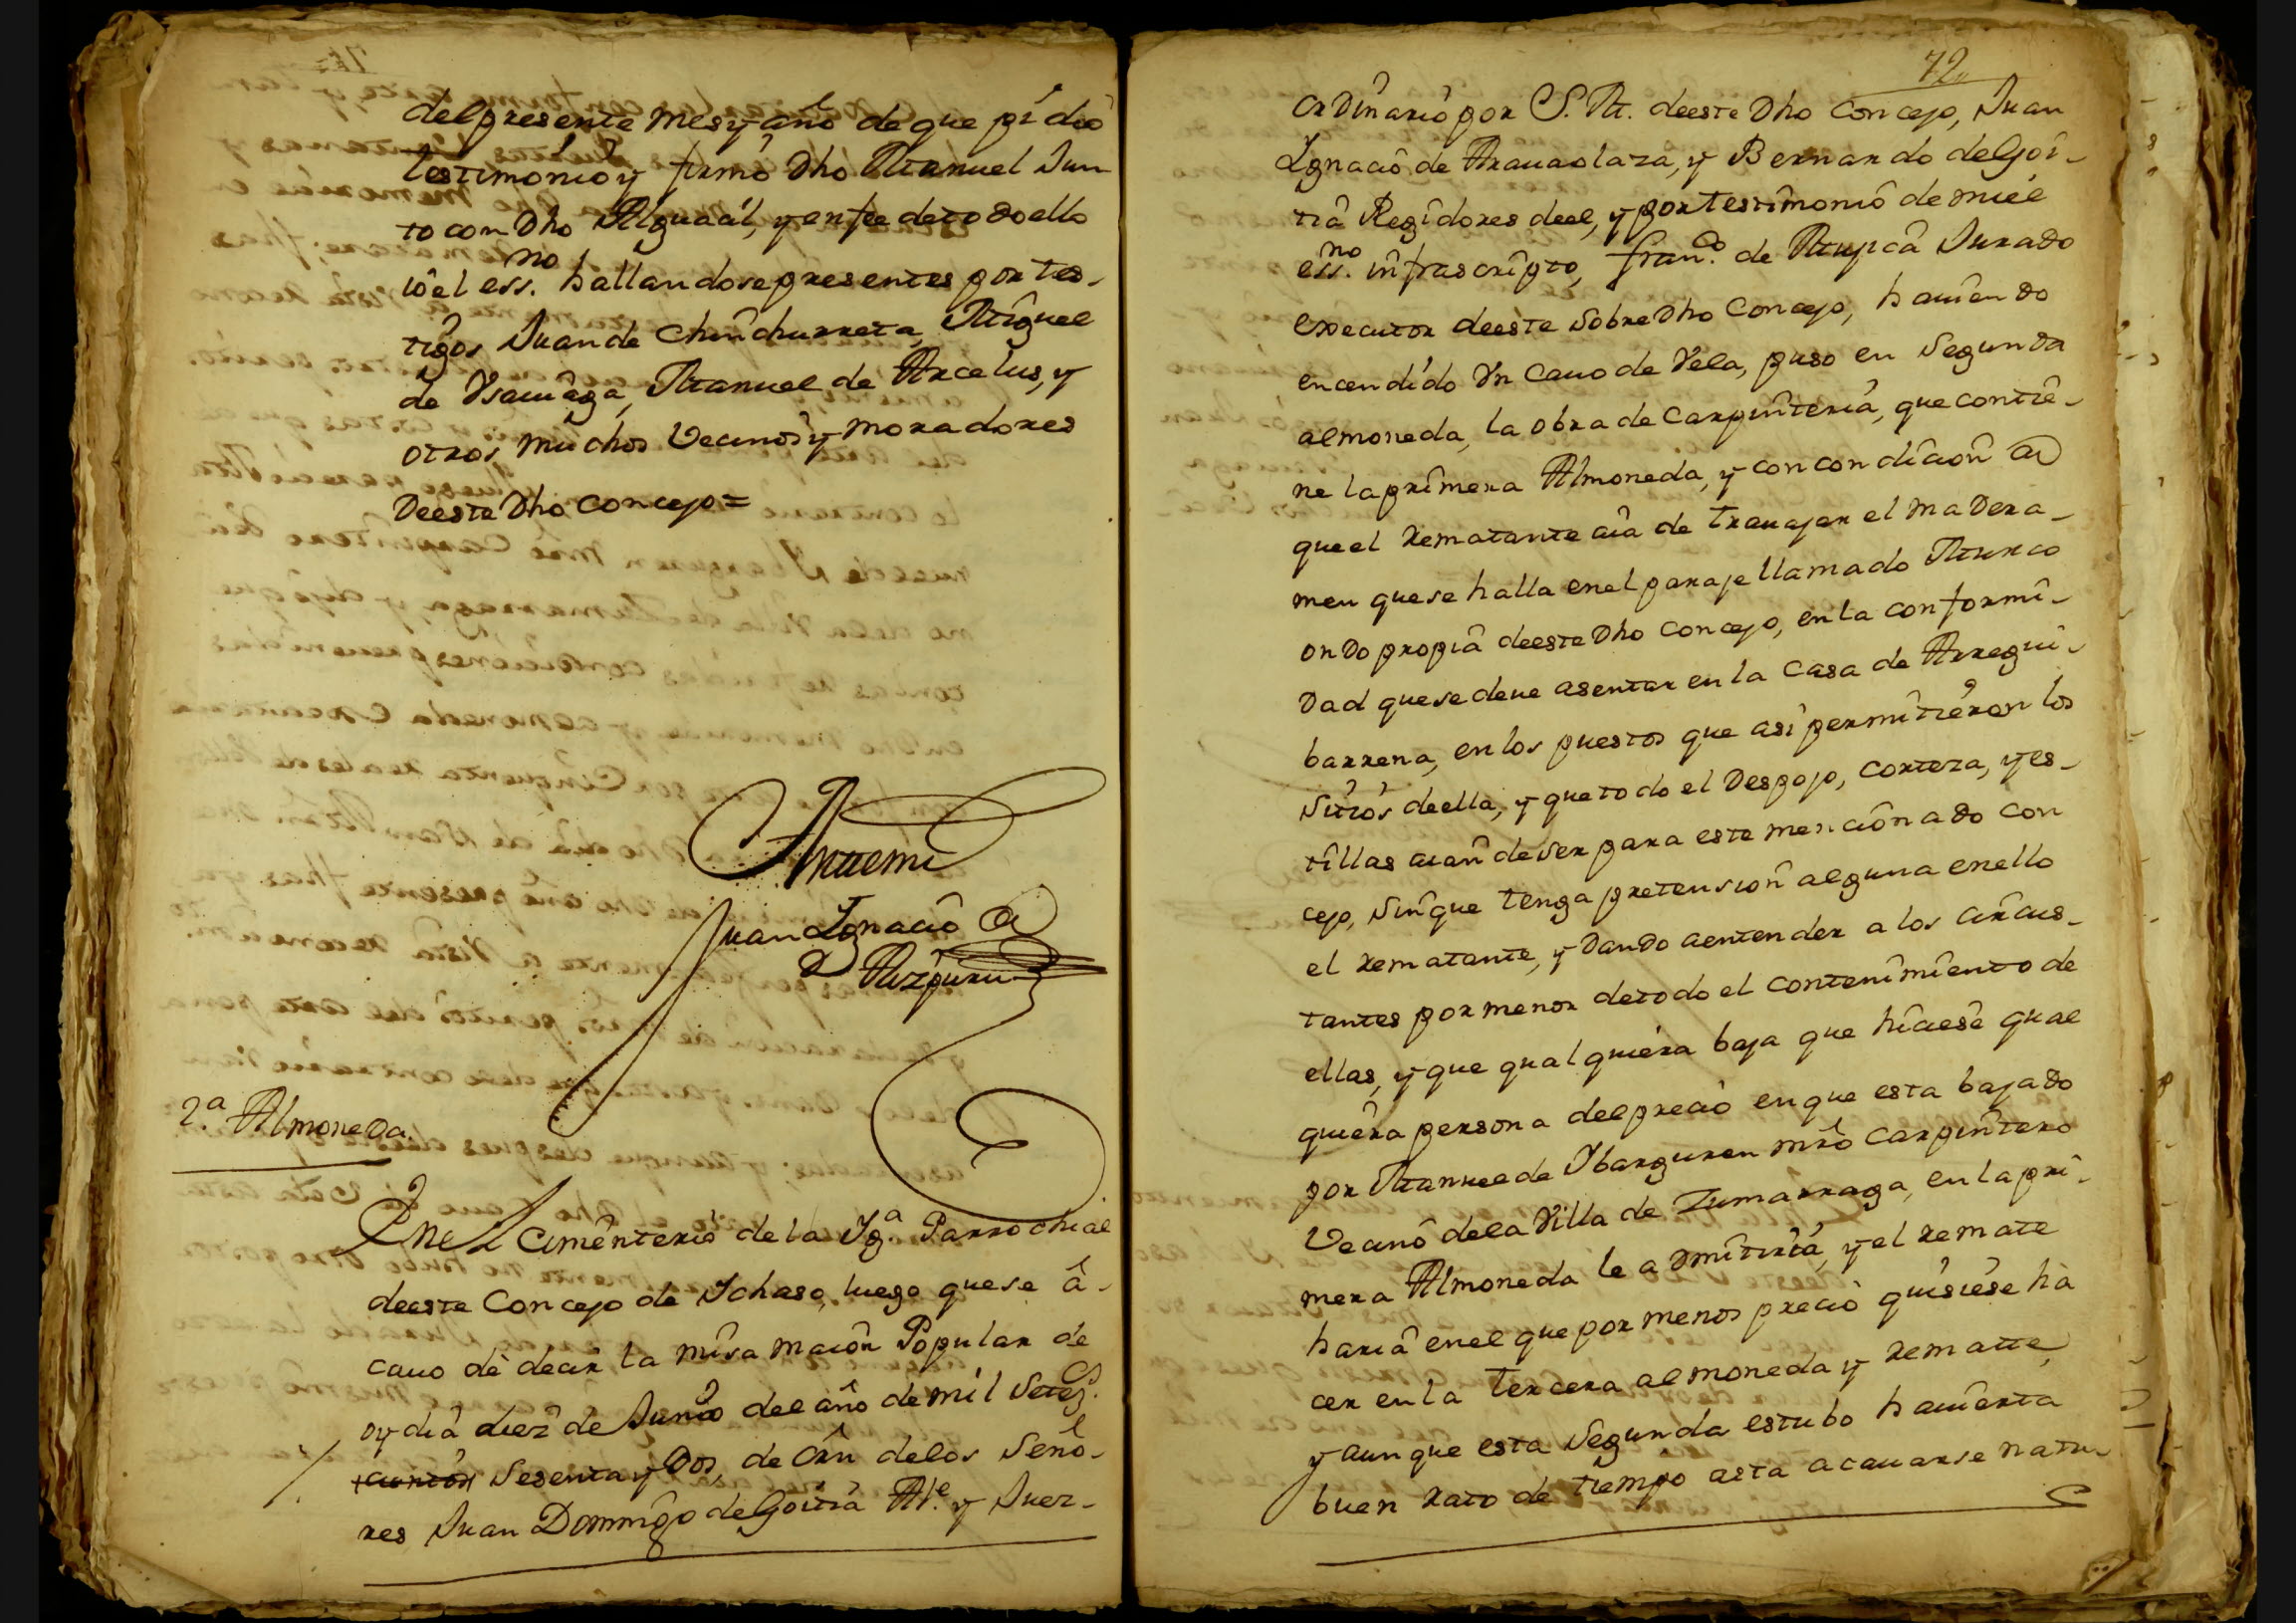 del presente mes y año de que pidio
testimonio y firmò Dho Manuel Jun
to con Dho Alguacil, y en fee de todo ello
io el ess.no hallandose presentes por tes-
tigos Juan de Chinchurreta, Miguel
de Vsauiaga, Manuel de Arcelus, y
otros muchos Vecinos y moradores
Deeste Dho Concejo=
Antemi
Juan Ignacio
D Aizpuru
2.a Almoneda.
En el Cimenterio de la Yg.a Parrochial
deeste Concejo de Ichaso, luego que se â-
cauo dè decir la misa maior Popular de
oy dia diez de Junio del año de mil Setez.s
cientos Sesenta y Dos, de Orn delos Seño-
res Juan Domingo de Goitia Al.e y Juez-
72
Ordinario por S. M. deeste Dho Concejo, Juan
Ygnacio de Arauaolaza, y Bernardo de Goi-
tia Regidores deel, y por testimonio de mi el
ess.no infrascripto, fran.co de Mujica Jurado
executor deeste Sobre Dho Concejo, hauiendo
encendido Vn Cauo de Vela, puso en Segunda
almoneda, la obra de Carpinteria, que contie-
ne la primera Almoneda, y con condicion
que el Rematante aia de trauajar el madera-
men que se halla en el paraje llamado Murco
ondo propia deeste Dho Concejo, en la conformi-
Dad que se deue asentar en la Casa de Arregui-
barrena, en los puestos que asi permitieron los
Sitios deella, y que todo el Despojo, corteza, y es-
tillas aian de ser para este mencionado con
cejo, Sin que tenga pretension alguna en ello
el Rematante, y Dando aentender a los circus-
tantes por menor de todo el contenimiento de
ellas, y que qual quiera baja que hiciese qual
quiera persona del precio en que esta bajado
por Manuel de Ybarguren mro Carpintero
Vecino dela Villa de Zumarraga, en la pri-
mera Almoneda le aDmitiria, y el Remate
haria en el que por menos precio quisiese ha
cer en la tercera almoneda y Remate,
y aunque esta Segunda estubo hauierta
buen rato de tiempo asta acauarse natu-